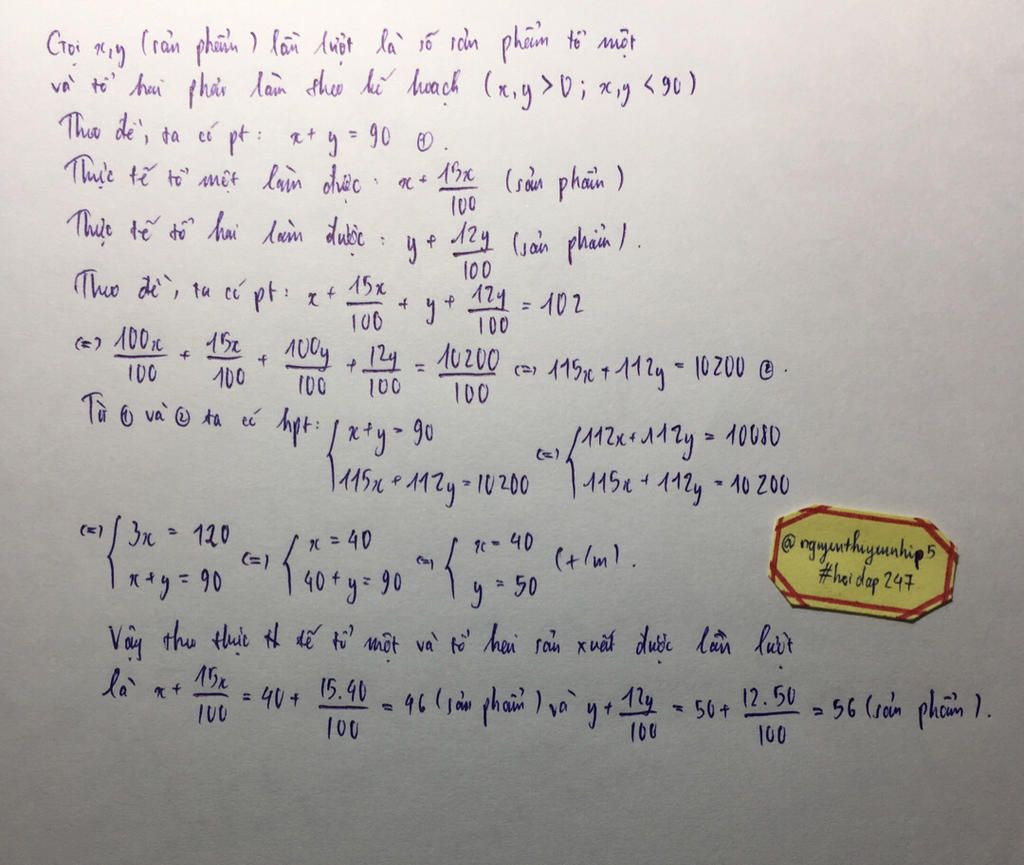 Gọi x,y (sản phẩm) lần lượt là số sản phẩm tổ một
và tổ hai phải làm theo kế hoạch (x,y > 0 ; x,y < 90)
Theo đề, ta có pt: x + y = 90 ①.
Thực tế tổ một làm được : x + 15x/100 (sản phẩm)
Thực tế tổ hai làm được : y + 12y/100 (sản phẩm).
Theo đề, ta có pt: x + 15x/100 + y + 12y/100 = 102
(=) 100x/100 + 15x/100 + 100y/100 + 12y/100 = 10200/100 (=) 115x + 112y = 10200 ②.
Từ ① và ② ta có hpt: { x + y = 90 ; 115x + 112y = 10200 (=) { 112x + 112y = 10080 ; 115x + 112y = 10200
(=) { 3x = 120 ; x + y = 90 (=) { x = 40 ; 40 + y = 90 (=) { x = 40 ; y = 50 (t/m).
@nguyenthuyeunhip5
#hoidap247
Vậy theo thực tế tổ một và tổ hai sản xuất được lần lượt
là x + 15x/100 = 40 + 15.40/100 = 46 (sản phẩm) và y + 12y/100 = 50 + 12.50/100 = 56 (sản phẩm).